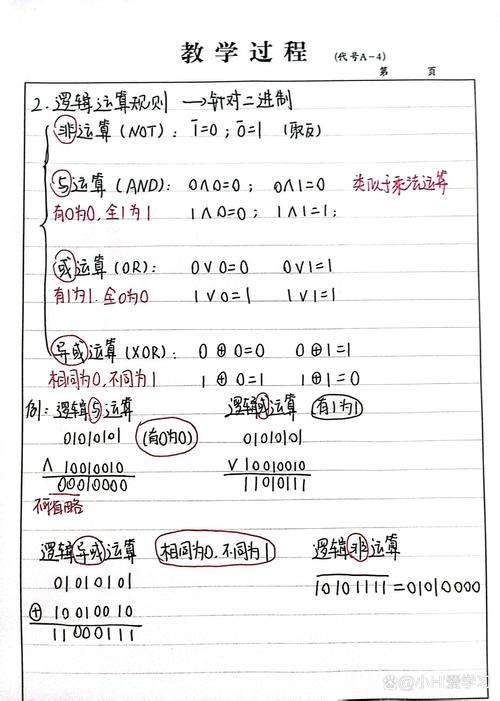 教学过程 (代号A-4)
第 页
2. 逻辑运算规则 → 针对二进制
非运算 (NOT): 1̅=0 ; 0̅=1 (取反)
与运算 (AND): 0∧0=0 ; 0∧1=0 类似于乘法运算
有0为0, 全1为1 1∧0=0 ; 1∧1=1 ;
或运算 (OR): 0∨0=0 0∨1=1
有1为1. 全0为0 1∨0=1 1∨1=1
异或运算 (XOR): 0⊕0=0 0⊕1=1
相同为0, 不同为1 1⊕0=1 1⊕1=0
例: 逻辑与运算 逻辑或运算 有1为1
01010101 (有0为0) 01010101
∧ 10010010 ∨ 10010010
00010000 11010111
不可省略
逻辑异或运算 相同为0, 不同为1 逻辑非运算
01010101 1̅0̅1̅0̅1̅1̅1̅1̅=01010000
⊕ 10010010
11000111
@小H爱学习